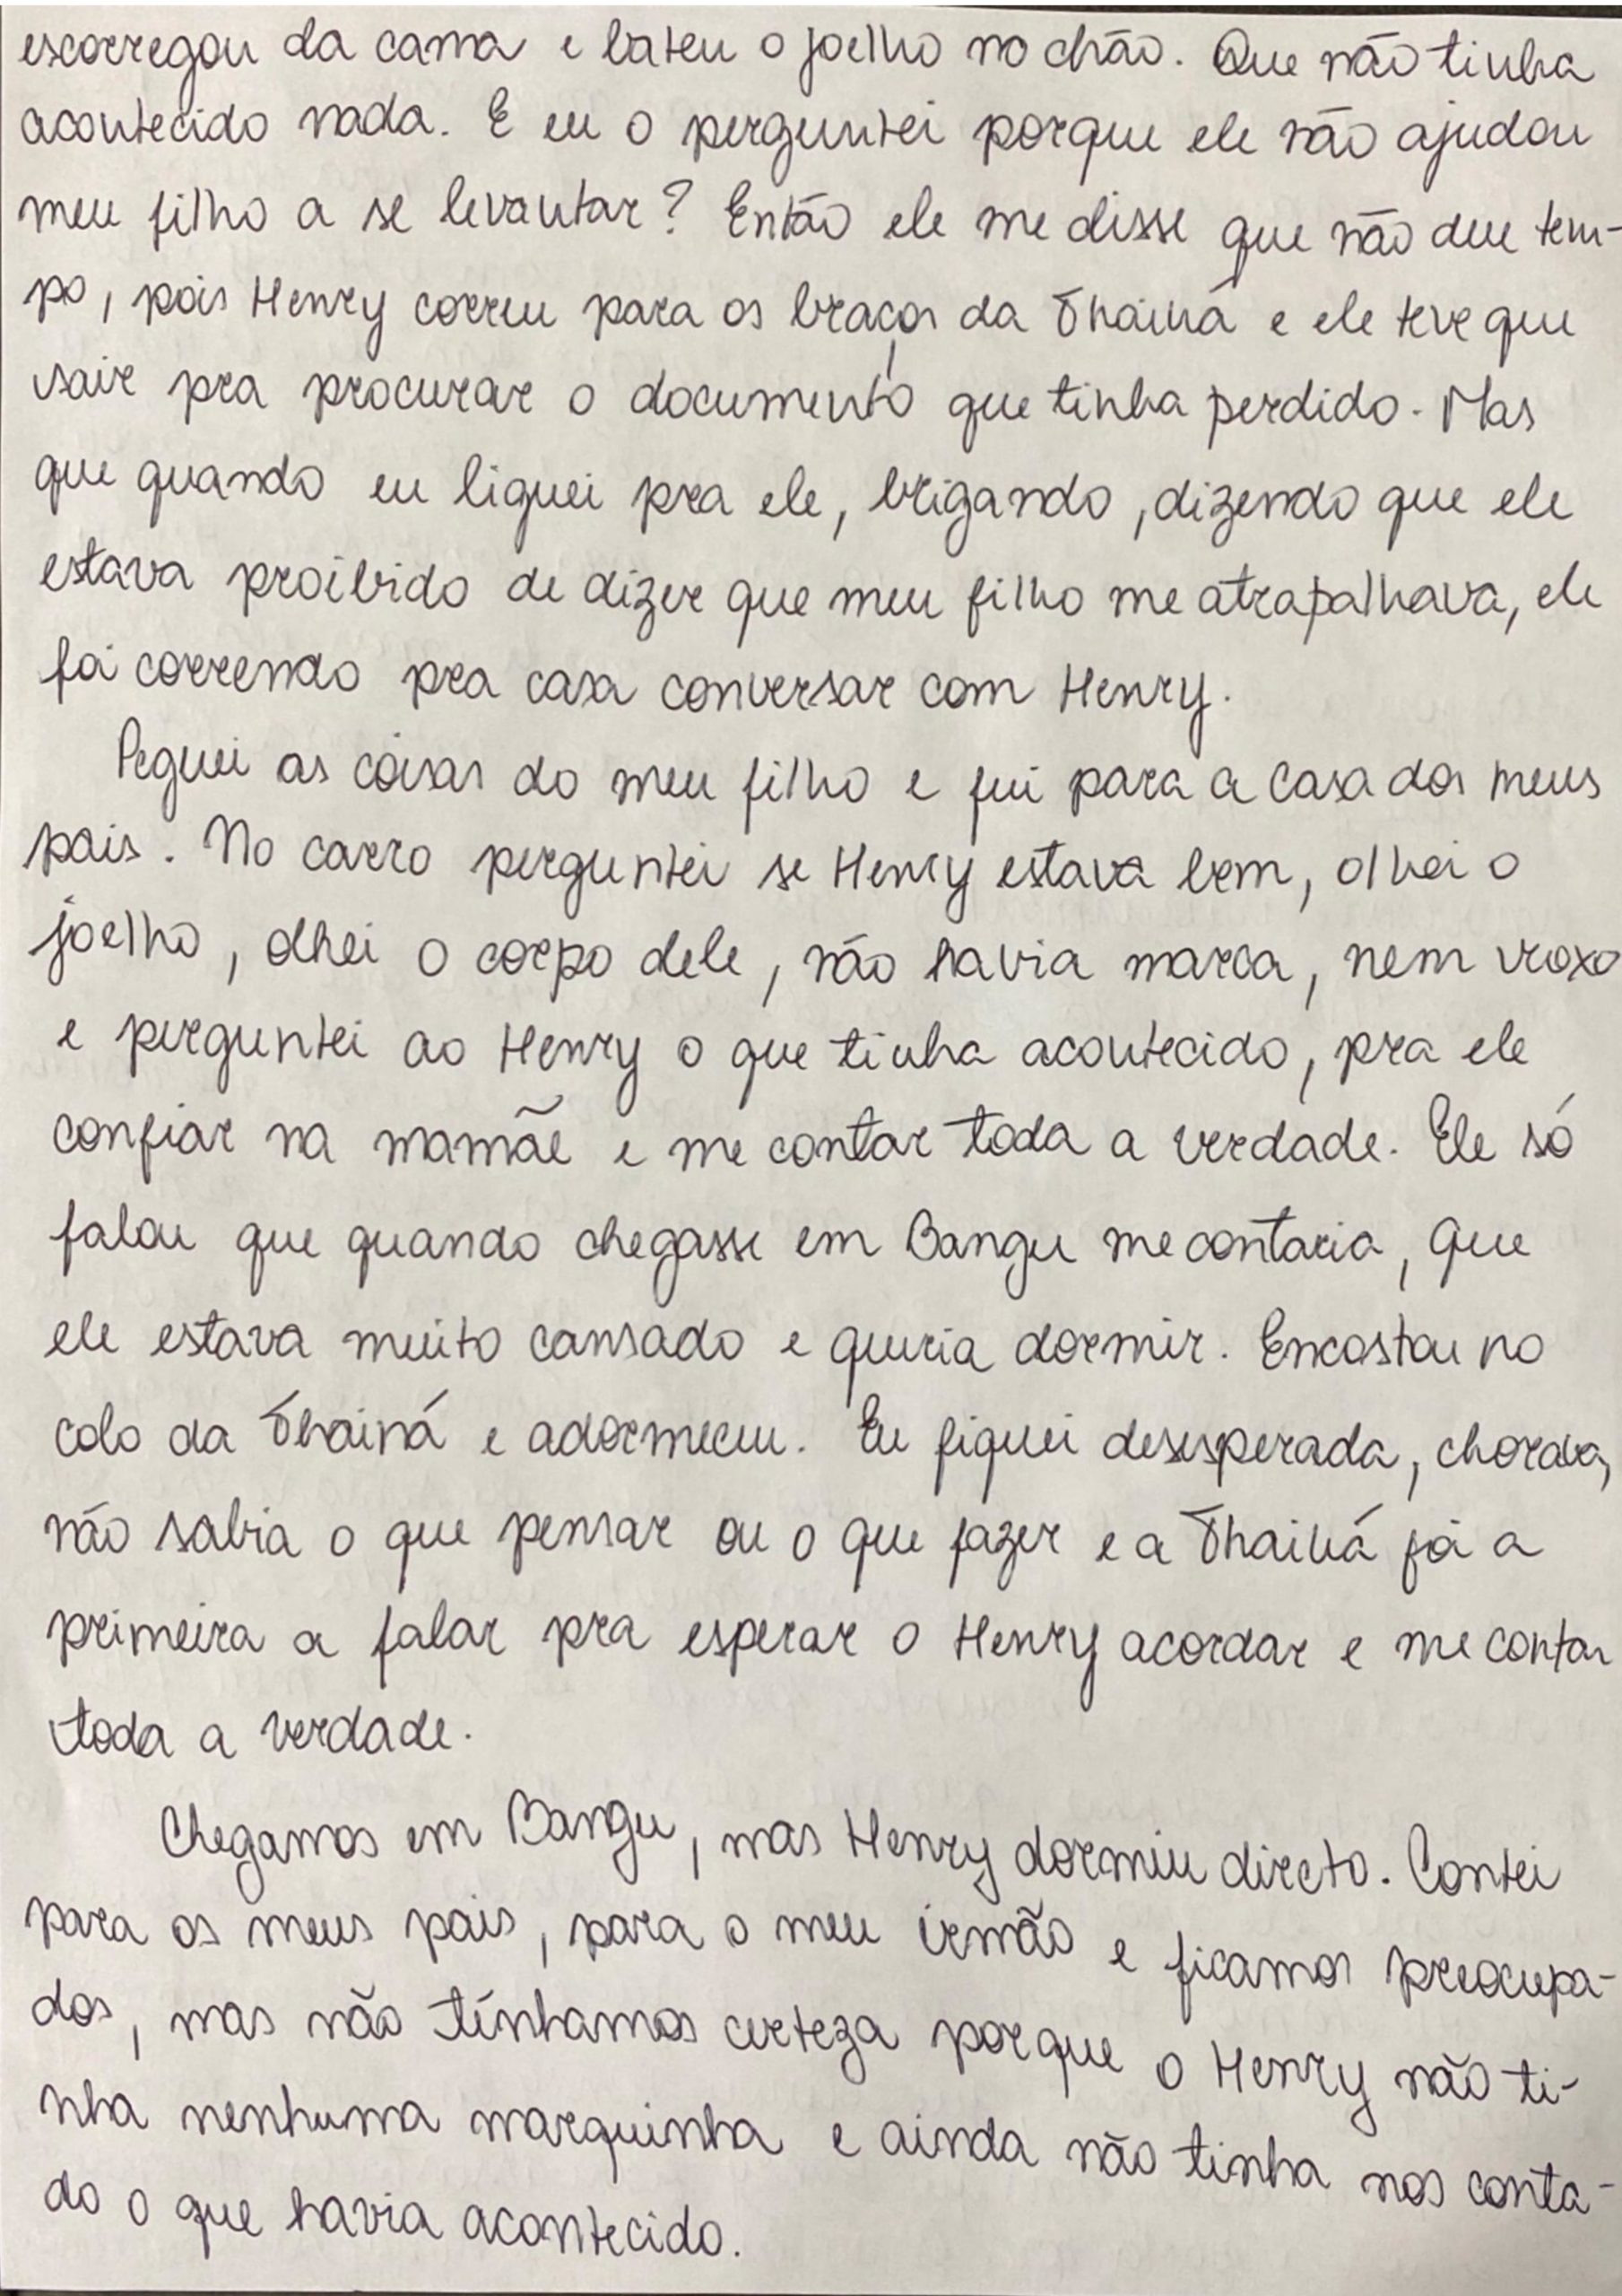 escorregou da cama e bateu o joelho no chão. Que não tinha
acontecido nada. E eu o perguntei porque ele não ajudou
meu filho a se levantar? Então ele me disse que não deu tem-
po, pois Henry correu para os braços da Thainá e ele teve que
sair pra procurar o documento que tinha perdido. Mas
que quando eu liguei pra ele, brigando, dizendo que ele
estava proibido de dizer que meu filho me atrapalhava, ele
foi correndo pra casa conversar com Henry.
Peguei as coisas do meu filho e fui para a casa dos meus
pais. No carro perguntei se Henry estava bem, olhei o
joelho, olhei o corpo dele, não havia marca, nem roxo
e perguntei ao Henry o que tinha acontecido, pra ele
confiar na mamãe e me contar toda a verdade. Ele só
falou que quando chegasse em Bangu me contaria, que
ele estava muito cansado e queria dormir. Encostou no
colo da Thainá e adormeceu. Eu fiquei desesperada, chorava,
não sabia o que pensar ou o que fazer e a Thainá foi a
primeira a falar pra esperar o Henry acordar e me contar
toda a verdade.
Chegamos em Bangu, mas Henry dormiu direto. Contei
para os meus pais, para o meu irmão e ficamos preocupa-
dos, mas não tínhamos certeza porque o Henry não ti-
nha nenhuma marquinha e ainda não tinha nos conta-
do o que havia acontecido.